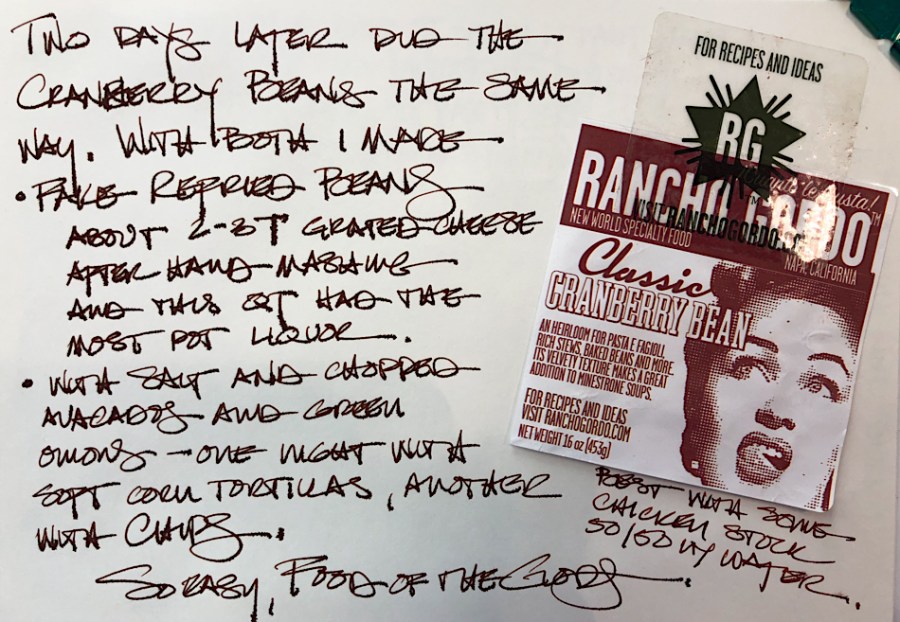 TWO DAYS LATER DID THE
CRANBERRY BEANS THE SAME
WAY. WITH BOTH I MADE
• FAKE REFRIED BEANS
ABOUT 2-3T GRATED CHEESE
AFTER HAND MASHING
AND THIS SET HAD THE
MOST POT LIQUOR.
• WITH SALT AND CHOPPED
AVACADOS AND GREEN
ONIONS - ONE NIGHT WITH
SOFT CORN TORTILLAS, ANOTHER
WITH CHIPS.
SO EASY, FOOD OF THE GODS.
FOR RECIPES AND IDEAS
RG
VISIT RANCHOGORDO.CO
RANCHO GORDO™
NEW WORLD SPECIALTY FOOD
NAPA, CALIFORNIA
Classic
CRANBERRY BEAN
AN HEIRLOOM FOR PASTA E FAGIOLI,
RICH STEWS, BAKED BEANS AND MORE.
ITS VELVETY TEXTURE MAKES A GREAT
ADDITION TO MINESTRONE SOUPS.
FOR RECIPES AND IDEAS
VISIT RANCHOGORDO.COM
NET WEIGHT 16 oz (453g)
BEST WITH SOME
CHICKEN STOCK
50/50 W/ WATER.